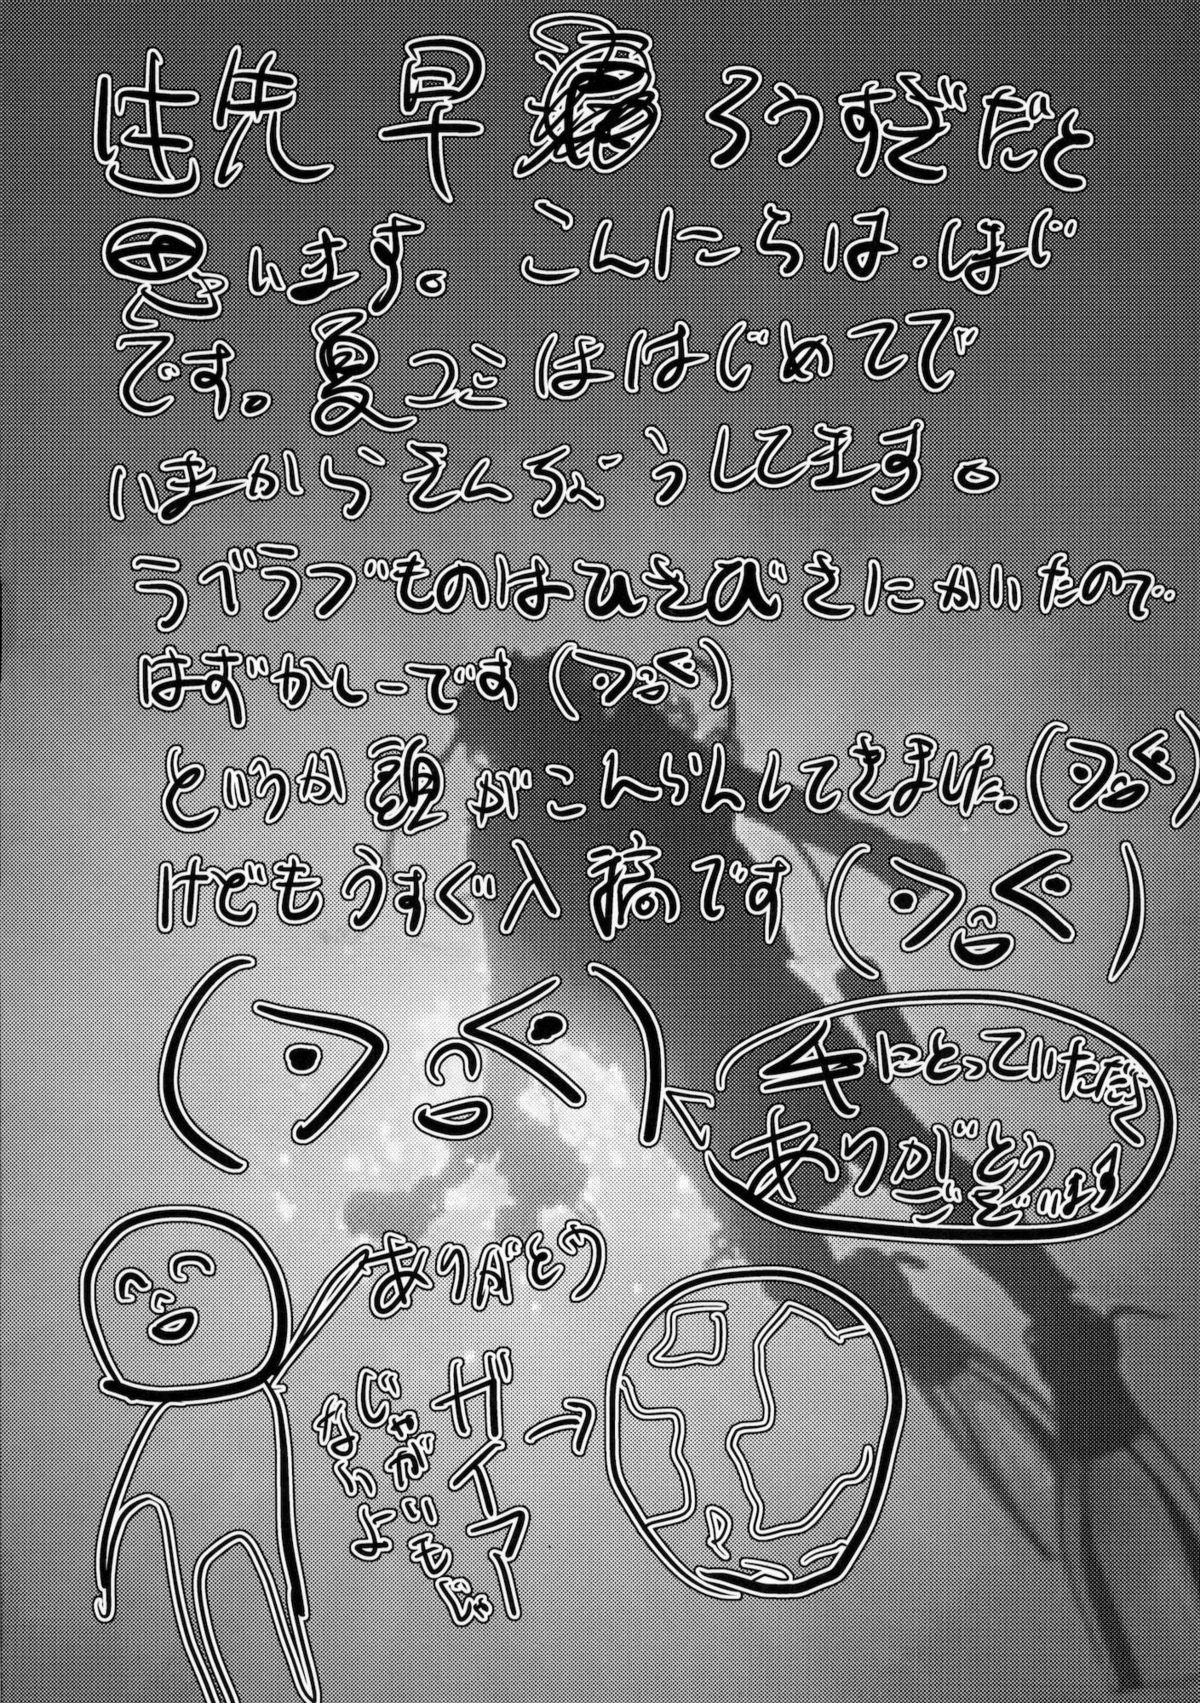 早 ろうすぎだと
思います。 こんにちは. ほじ
です。夏コミははじめてで
いまからぞんぶうしてます。
ラブラブものはひさびさにかいたので..
はずかしーです
というか 頭がこんらんしてきました。
けどもうすぐ入稿です
手にとっていただき
ありがとう
ございます
ありがとう
ガイアー
じゃがいもじゃ
ないよ